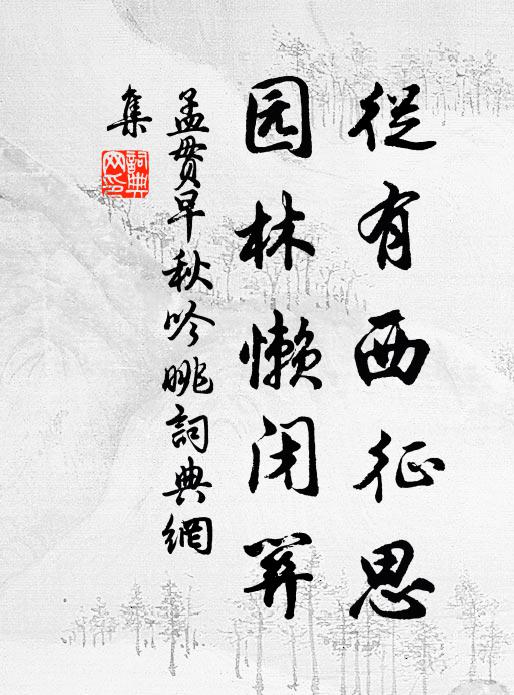 從有西征思
园林懒闭关
孟贯早秋吟眺詞典網
集
詞典
网印